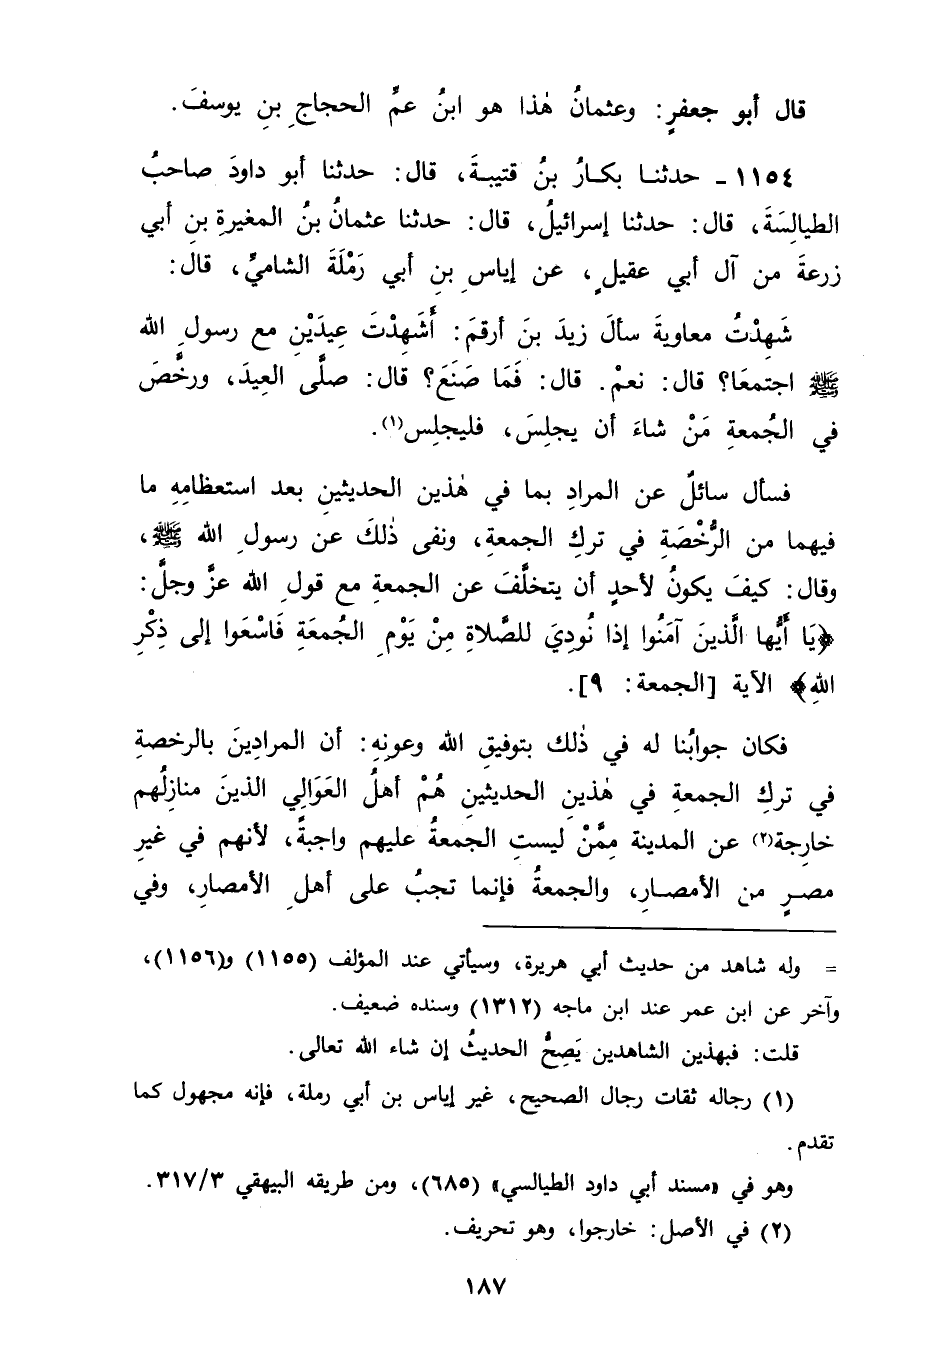 قال أبو جعفرٍ: وعثمانُ هٰذا هو ابنُ عمِّ الحجاجِ بنِ يوسفَ.
١١٥٤ - حدثنا بكارُ بنُ قتيبةَ، قال: حدثنا أبو داودَ صاحبُ
الطيالِسَةَ، قال: حدثنا إسرائيلُ، قال: حدثنا عثمانُ بنُ المغيرةِ بنِ أبي
زرعةَ من آل أبي عقيلٍ، عن إياسِ بنِ أبي رَمْلَةَ الشاميِّ، قال:
شَهِدْتُ معاويةَ سألَ زيدَ بنَ أرقمَ: أَشَهِدْتَ عِيدَيْنِ مع رسولِ الله
ﷺ اجتمعَا؟ قال: نعمْ. قال: فَمَا صَنَعَ؟ قال: صلَّى العيدَ، ورخَّصَ
في الجُمعةِ مَنْ شاءَ أن يجلِسَ، فليجلِس(١).
فسأل سائلٌ عن المرادِ بما في هٰذين الحديثين بعد استعظامِهِ ما
فيهما من الرُّخْصَةِ في تركِ الجمعةِ، ونفى ذٰلكَ عن رسولِ الله ﷺ،
وقال: كيفَ يكونُ لأحدٍ أن يتخلَّفَ عن الجمعةِ مع قولِ الله عزَّ وجلَّ:
﴿يَا أَيُّها الَّذينَ آمَنُوا إذا نُودِيَ للصَّلاةِ مِنْ يَوْمِ الجُمعَةِ فَاسْعَوا إلى ذِكْرِ
اللهِ﴾ الآية [الجمعة: ٩].
فكان جوابُنا له في ذٰلك بتوفيقِ الله وعونِهِ: أن المرادِينَ بالرخصةِ
في تركِ الجمعةِ في هٰذينِ الحديثينِ هُمْ أهلُ العَوَالِي الذينَ منازِلُهم
خارِجة(٢) عن المدينة مِمَّنْ ليستِ الجمعةُ عليهم واجبةً، لأنهم في غيرِ
مصرٍ من الأمصارِ، والجمعةُ فإنما تجبُ على أهلِ الأمصارِ، وفي
= وله شاهد من حديث أبي هريرة، وسيأتي عند المؤلف (١١٥٥) و(١١٥٦)،
وآخر عن ابن عمر عند ابن ماجه (١٣١٢) وسنده ضعيف.
قلت: فبهذين الشاهدين يَصِحُّ الحديثُ إن شاء الله تعالى.
(١) رجاله ثقات رجال الصحيح، غير إياس بن أبي رملة، فإنه مجهول كما
تقدم.
وهو في «مسند أبي داود الطيالسي» (٦٨٥)، ومن طريقه البيهقي ٣١٧/٣.
(٢) في الأصل: خارجوا، وهو تحريف.
١٨٧